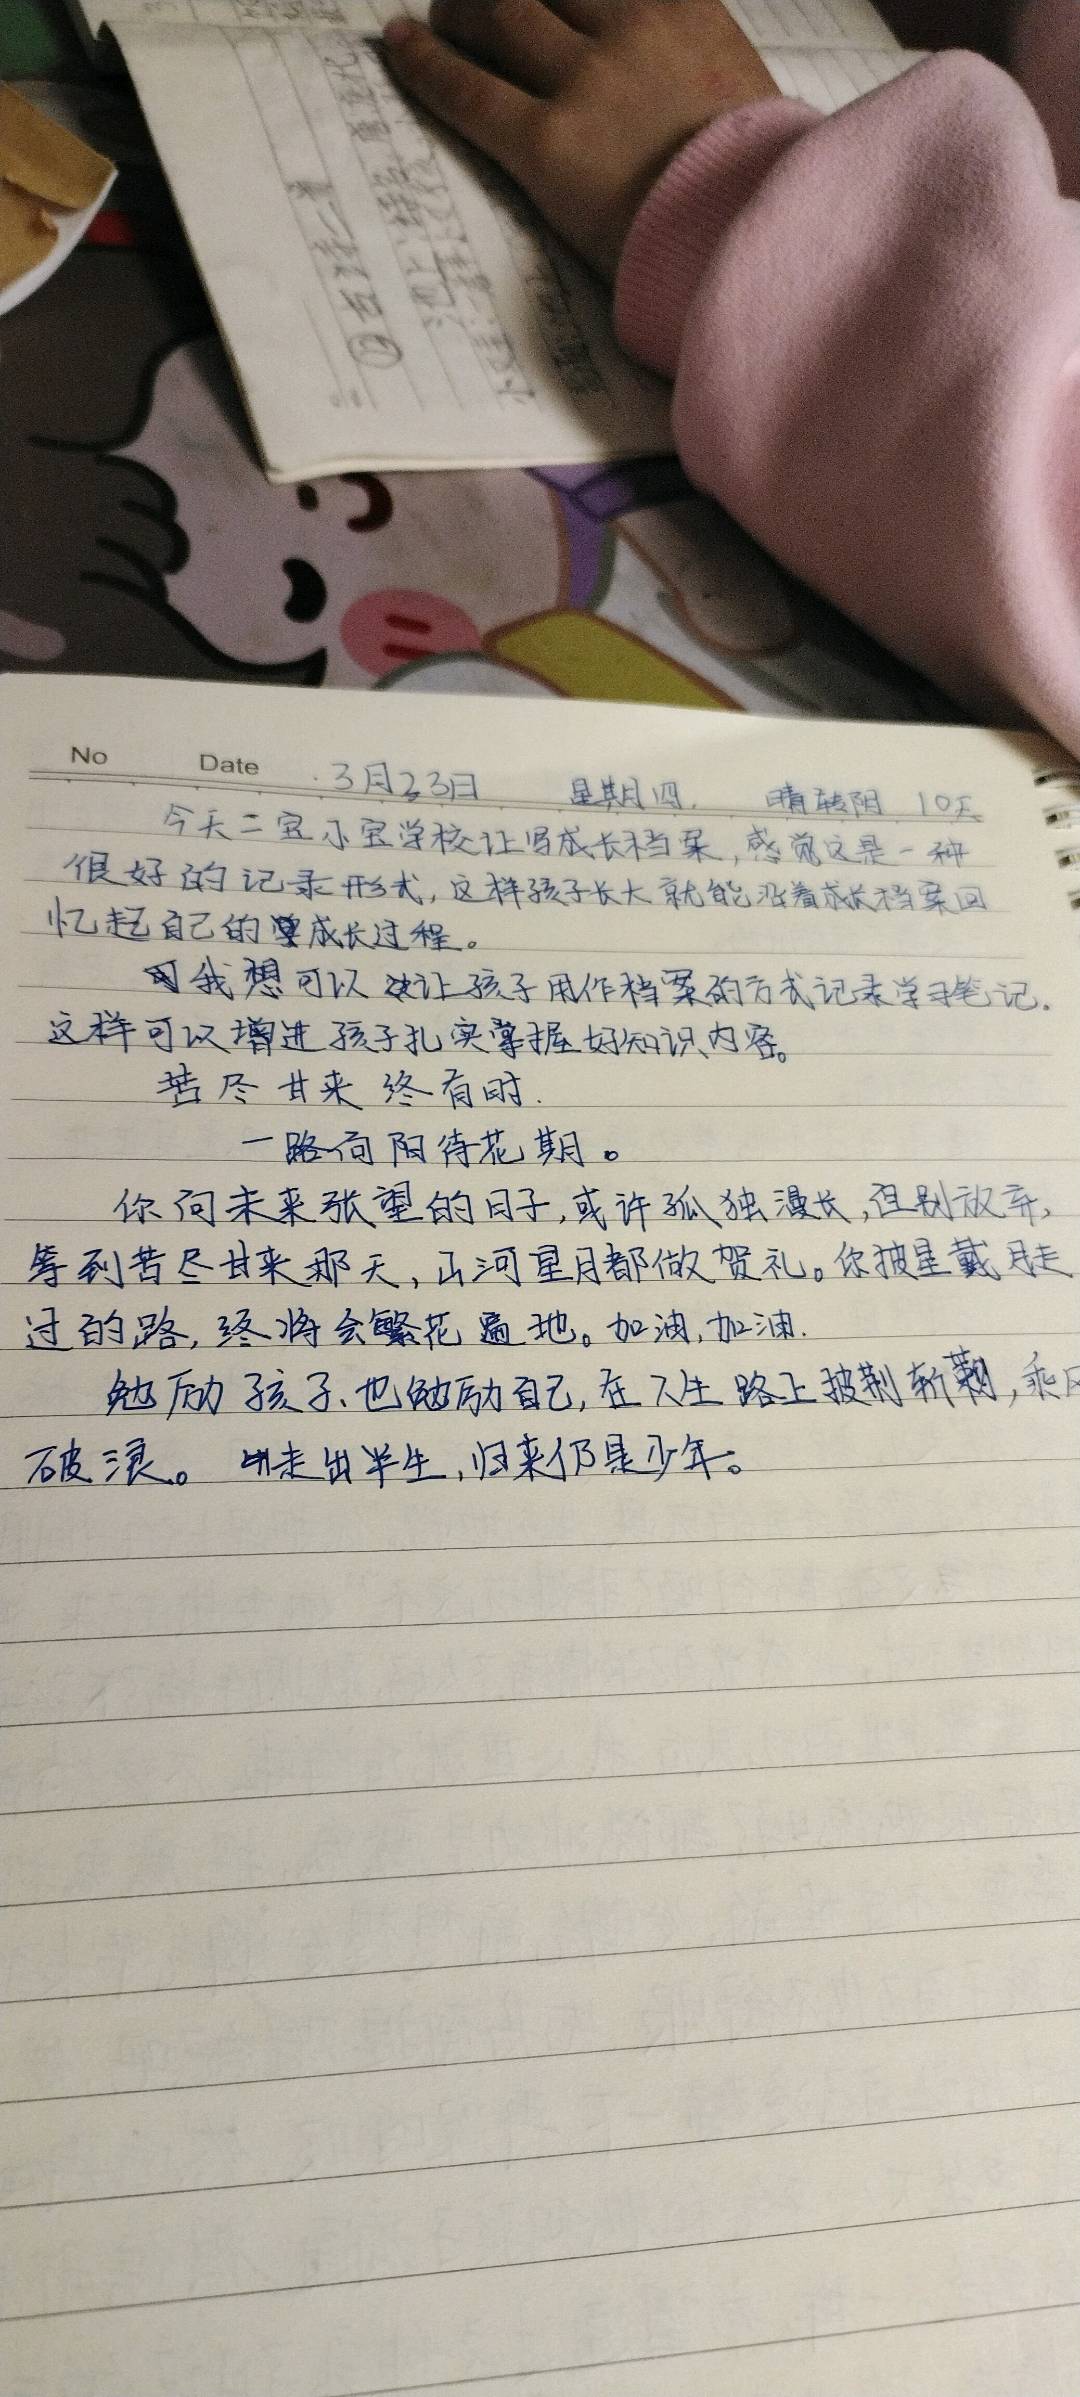 No Date 3月23日 星期四. 晴转阴 10天
今天二宝小宝学校让写成长档案,感觉这是一种
很好的记录形式,这样孩子长大就能沿着成长档案回
忆起自己的成长过程。
我想可以让孩子用作档案的方式记录学习笔记.
这样可以增进孩子扎实掌握好知识内容。
苦尽甘来终有时.
一路向阳待花期。
你向未来张望的日子,或许孤独漫长,但别放弃,
等到苦尽甘来那天,山河星月都做贺礼。你披星戴月走
过的路,终将会繁花遍地。加油,加油.
勉励孩子、也勉励自己,在人生路上披荆斩棘,乘风
破浪。走出半生,归来仍是少年。